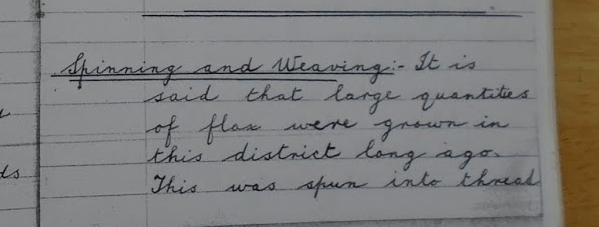 Spinning and Weaving:- It is
said that large quantities
of flax were grown in
this district long ago.
This was spun into thread
ds